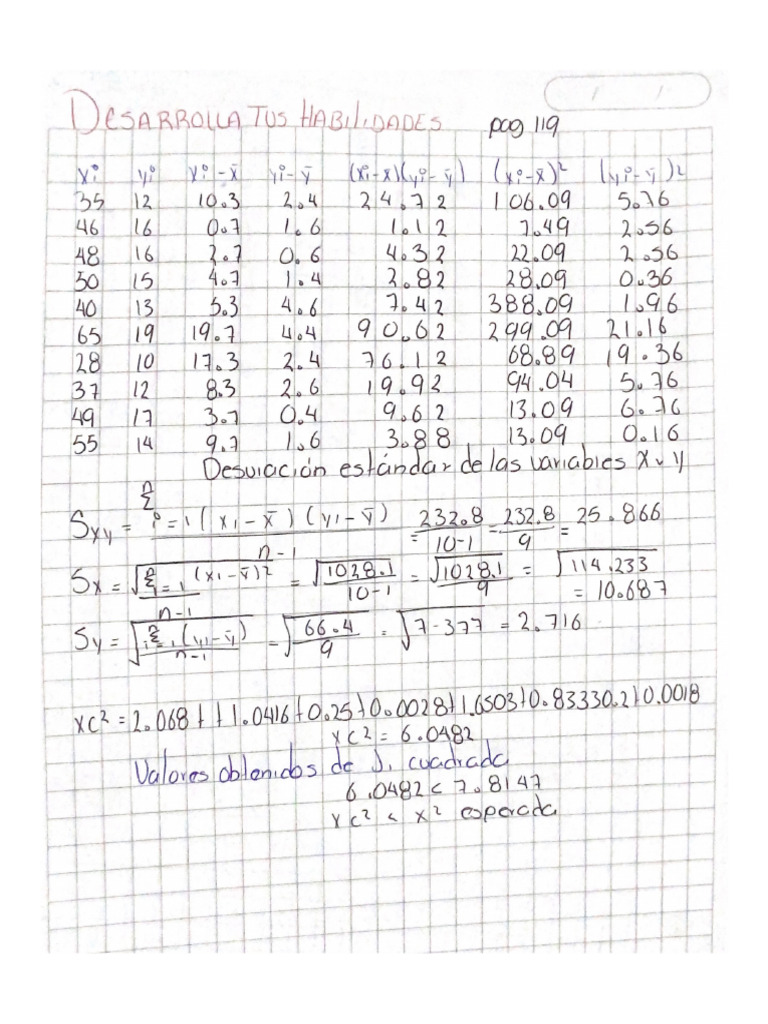 DESARROLLA TUS HABILIDADES pag 119
xi yi xi-x̄ yi-ȳ (xi-x)(yi-ȳ) (xi-x̄)² (yi-ȳ)2
35 12 10.3 2.4 24.72 106.09 5.76
46 16 0.7 1.6 1.12 7.49 2.56
48 16 2.7 0.6 4.32 22.09 2.56
50 15 4.7 1.4 2.82 28.09 0.36
40 13 5.3 4.6 7.42 388.09 1.96
65 19 19.7 4.4 90.62 299.09 21.16
28 10 17.3 2.4 76.12 68.89 19.36
37 12 8.3 2.6 19.92 94.04 5.76
49 17 3.7 0.4 9.62 13.09 6.76
55 14 9.7 1.6 3.88 13.09 0.16
Desviación estándar de las variables X y Y
Sxy = n Σ i=1 (xi-x̄)(yi-ȳ) / n-1 = 232.8 / 10-1 = 232.8 / 9 = 25.866
Sx = √ n Σ i=1 (xi-x̄)² / n-1 = √1028.1 / 10-1 = √1028.1 / 9 = √114.233
= 10.687
Sy = √ n Σ i=1 (yi-ȳ) / n-1 = √66.4 / 9 = √7.377 = 2.716
xc² = 2.068 + +1.0416+0.25+0.0028+1.6503+0.83330.2+0.0018
xc² = 6.0482
Valores obtenidos de Ji cuadrada
6.0482 < 7.8147
xc² < x² esperada